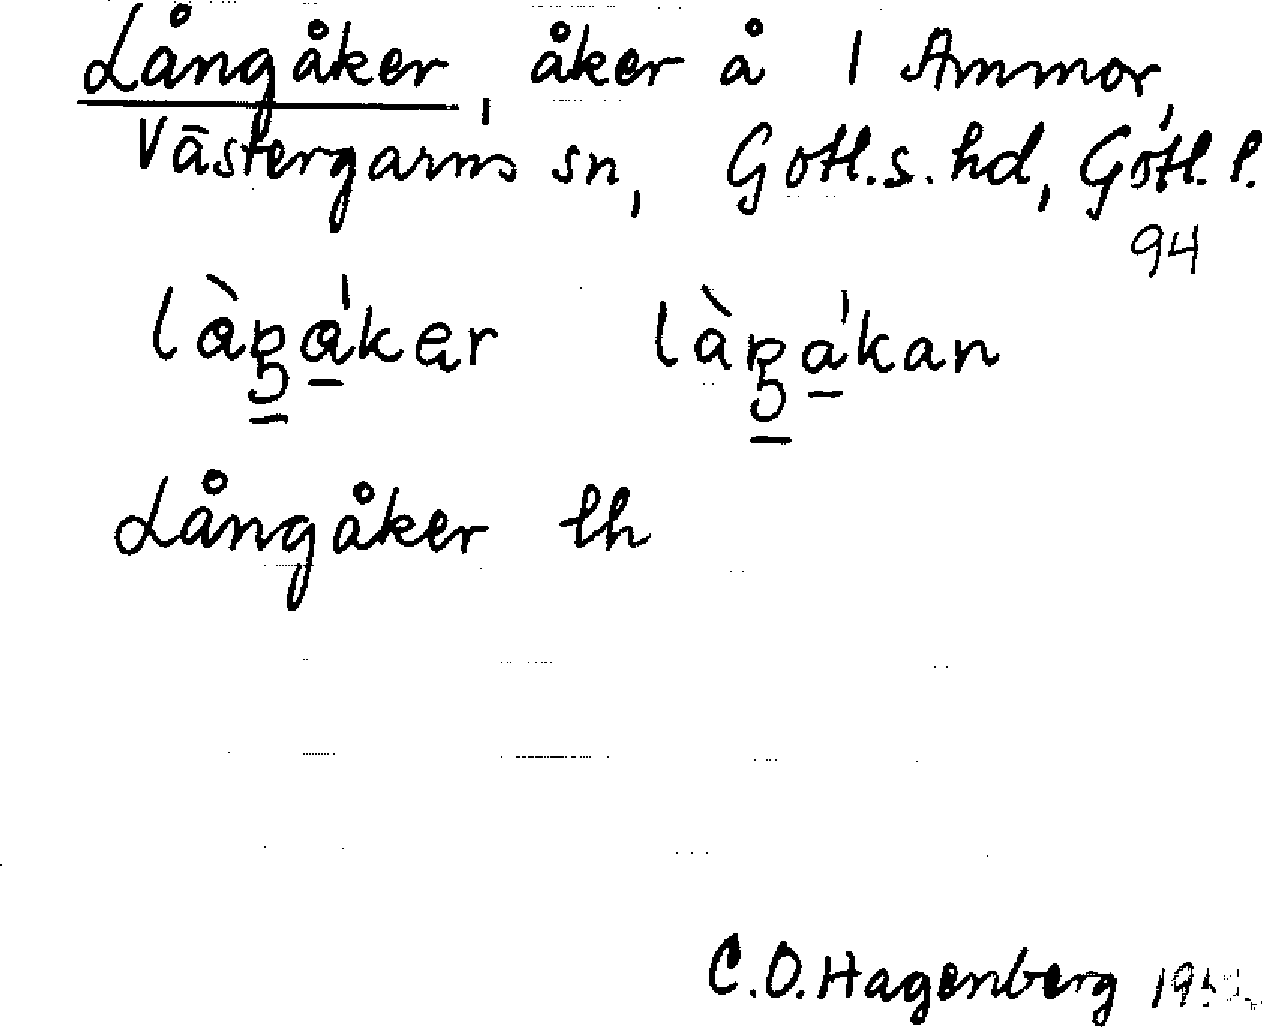 Långåker, åker å 1 Ammor,
Västergarns sn, Gotl.s. hd, Gotl. l.
94
làŋåkar làŋåkan
Långåker lh
C.O.Hagenberg